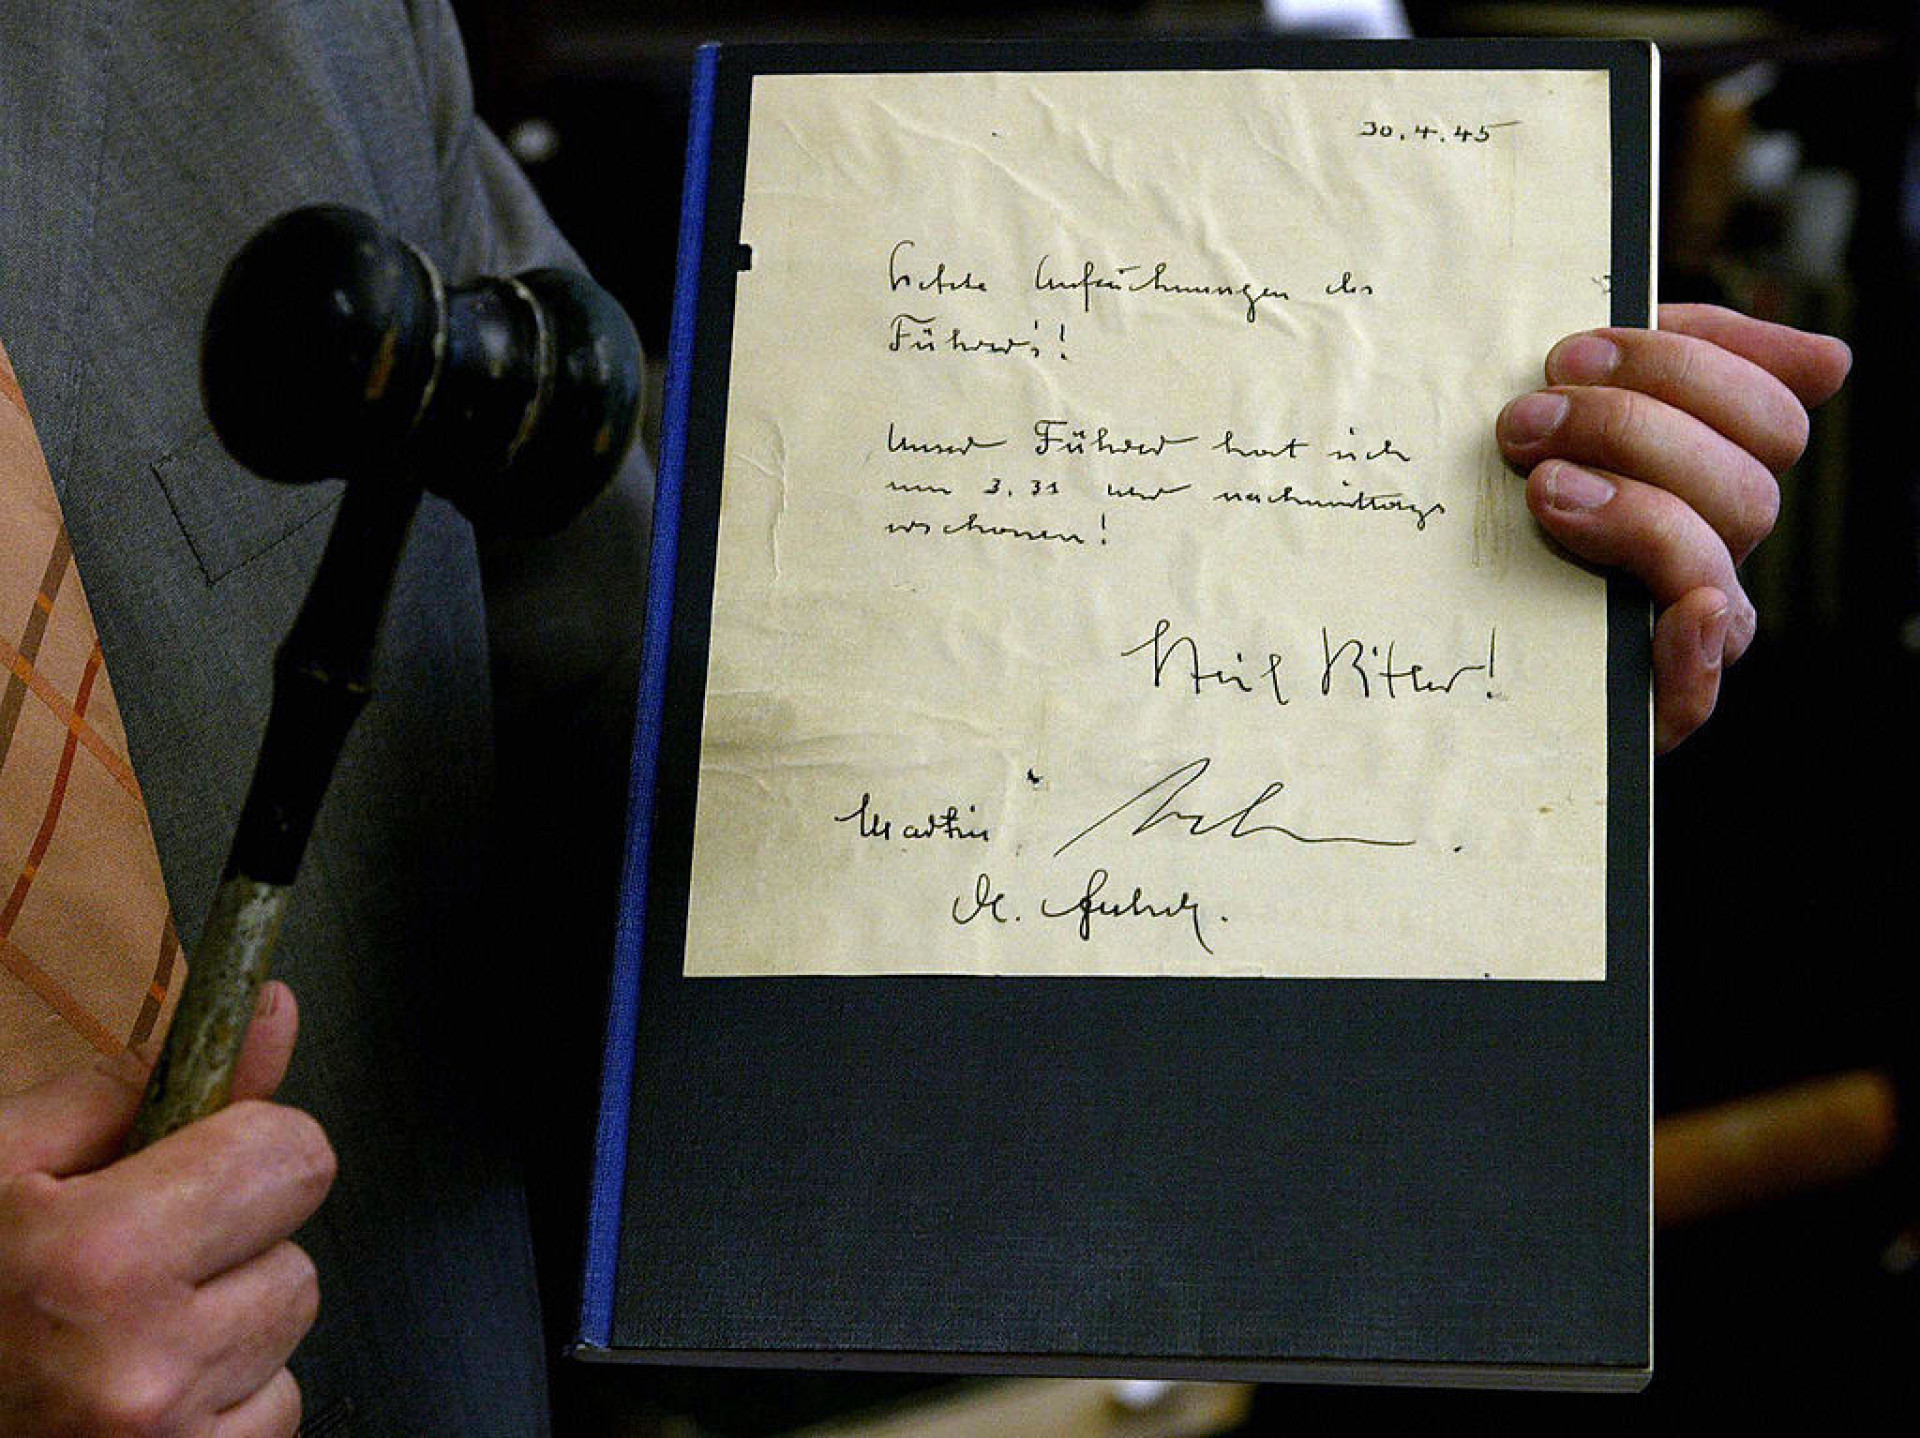 30.4.45
Letzte Aufzeichnungen des
Führer's!
Unser Führer hat sich
um 3.31 Uhr nachmittags
erschossen!
Heil Hitler!
Martin